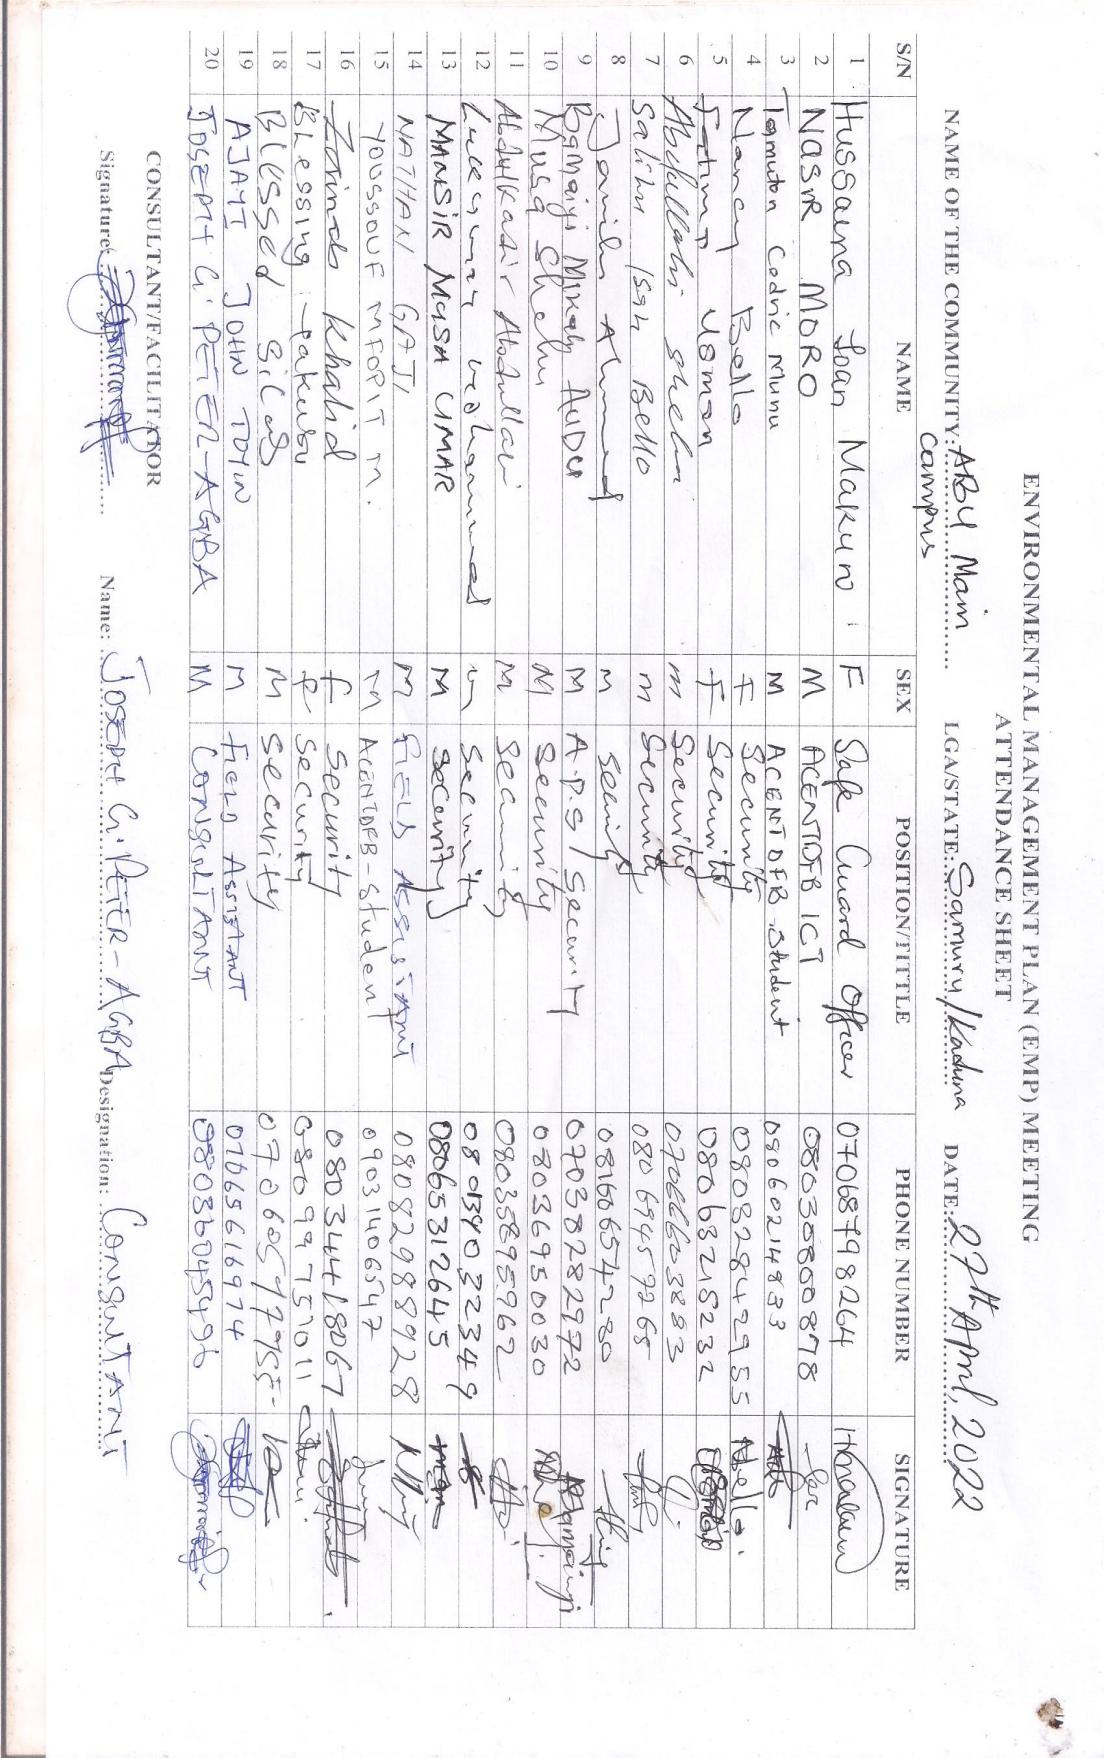 ENVIRONMENTAL MANAGEMENT PLAN (EMP) MEETING
ATTENDANCE SHEET
NAME OF THE COMMUNITY: ABU Main Campus LGA/STATE: Samuru/Kaduna DATE: 27th April, 2022
S/N NAME SEX POSITION/TITTLE PHONE NUMBER SIGNATURE
1 Hussaena Joan Makuno F Safe Guard Officer 07068798264
2 NASIR MORO M ACENTDFB ICT 08030800878
3 Tamuton Cedric Munu M ACENTDFB Student 08060214833
4 Nancy Bello F Security 08083284 2955 Nbello.
5 Fatima Usman F Security 08063218232
6 Abdullahi Shehu m Security 07066603883
7 Salihu Isah Bello m Security 08069459265
8 Jamilu Ahmed m Security 08166654280
9 Bamaiyi Mikaly AUDU M A.D.S/ Security 07038282972
10 Musa Shehu M Security 08036950030
11 Abdulkadir Abdullahi M Security 08035895962
12 Security
13 MANSIR MUSA UMAR M Security 08065312645
14 NATHAN GAJI M FIELD ASSISTANT 08082988928
15 YOUSSOUF MFOPIT M. M ACENTDFB-Student 09031406547
16 Khalid f Security 08034418267
17 Blessing Yakubu F Security 08099751011
18 Blessed Silas M Security
19 AJAYI JOHN TOYIN M Field ASSISTANT 07065616974
20 JOSEPH G. PETER-AGBA M CONSULTANT
CONSULTANT/FACILITATOR
Signature: Name: JOSEPH G. PETER-AGBA Designation: CONSULTANT